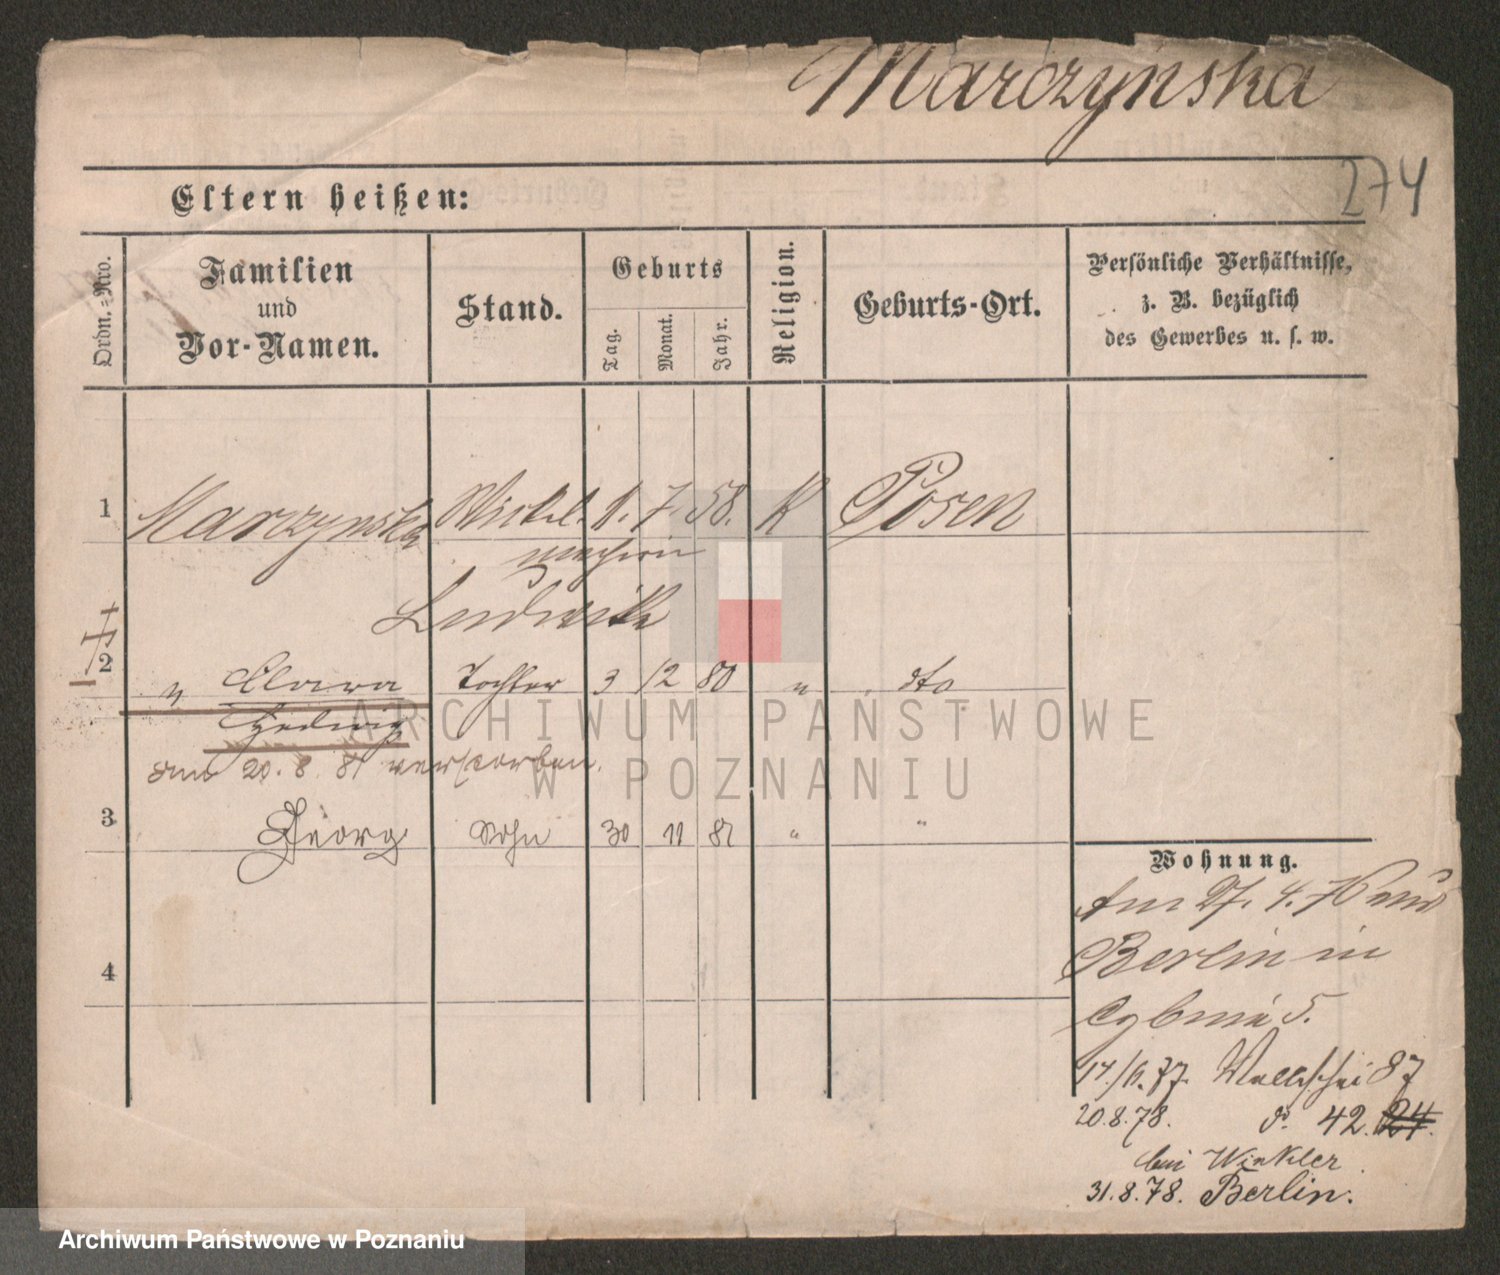 Marczyńska
274
Eltern heißen:
Ordn.=Nro.
Familien
und
Vor-Namen.
Stand.
Geburts
Tag.
Monat.
Jahr.
Religion.
Geburts-Ort.
Persönliche Verhältnisse,
z. B. bezüglich
des Gewerbes u. s. w.
1 Marzynska 7. 58. K Posen
Ludwika
2 " Clara Tochter 3 12 80 " dto
Hedwig
am 20. 8. 81 verstorben.
3 Georg Sohn 30 11 81 " "
4
Wohnung.
Am 27. 4. 76 aus
Berlin in
5.
14./6. 77. Wallischei 87
20.8.78. do. 42. 24.
bei Winkler.
31.8.78. Berlin.
ARCHIWUM PAŃSTWOWE
W POZNANIU
Archiwum Państwowe w Poznaniu